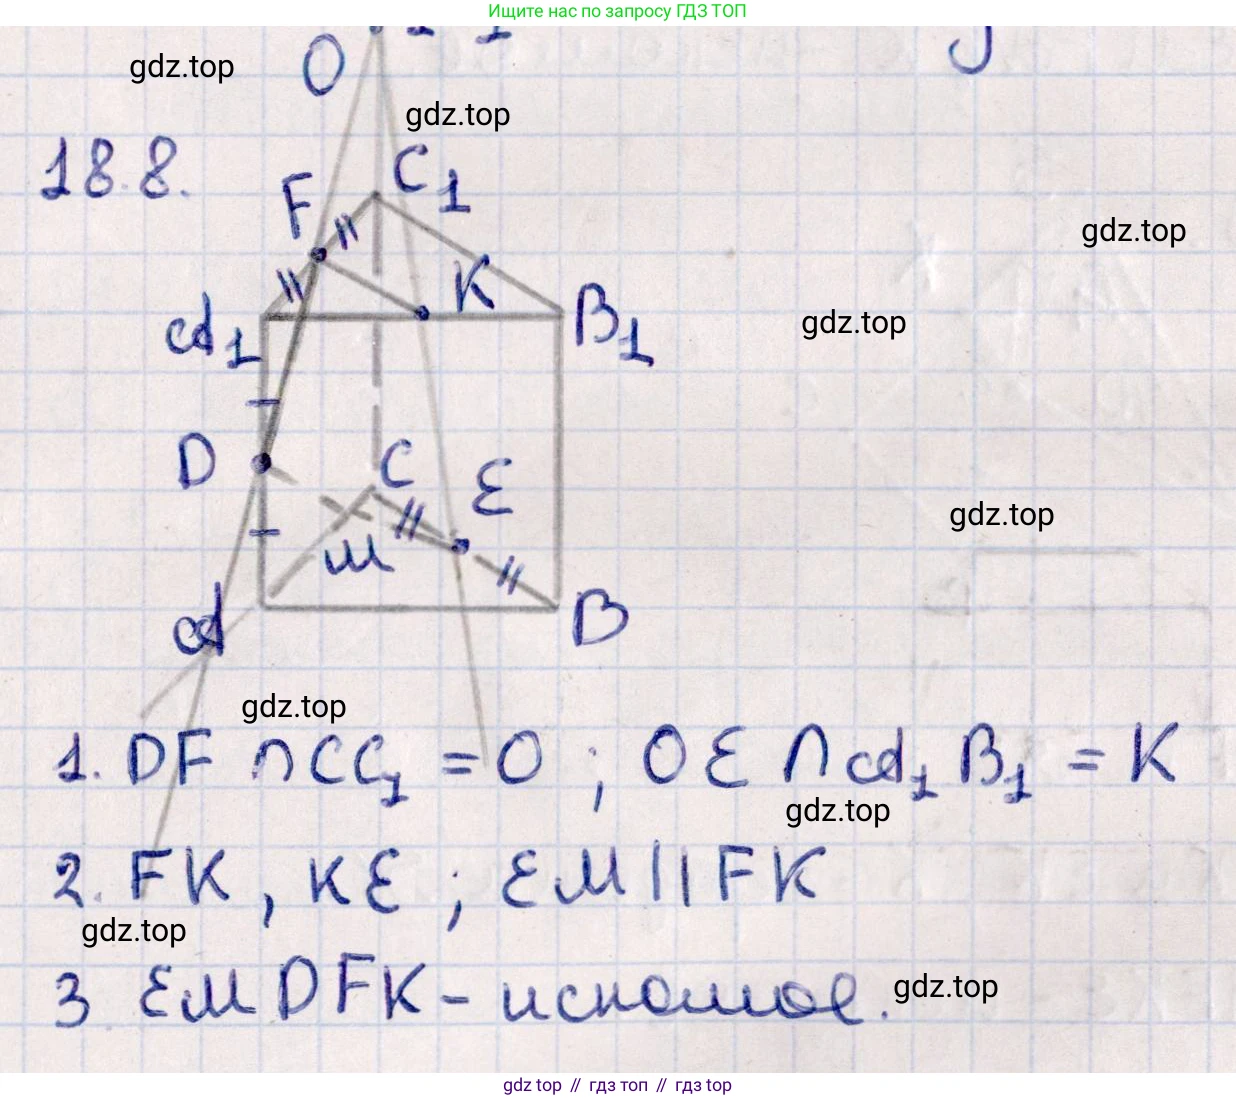 Ищите нас по запросу ГДЗ ТОП
O
gdz.top
gdz.top
18.8.
C₁
F
gdz.top
K
A₁
B₁
gdz.top
D
C
E
gdz.top
M
A
B
gdz.top
1. DF ∩ CC₁ = O ; OE ∩ A₁B₁ = K
gdz.top
2. FK, KE ; EM || FK
gdz.top
3 EMDFK - искомое.
gdz.top
gdz top // гдз топ // гдз top